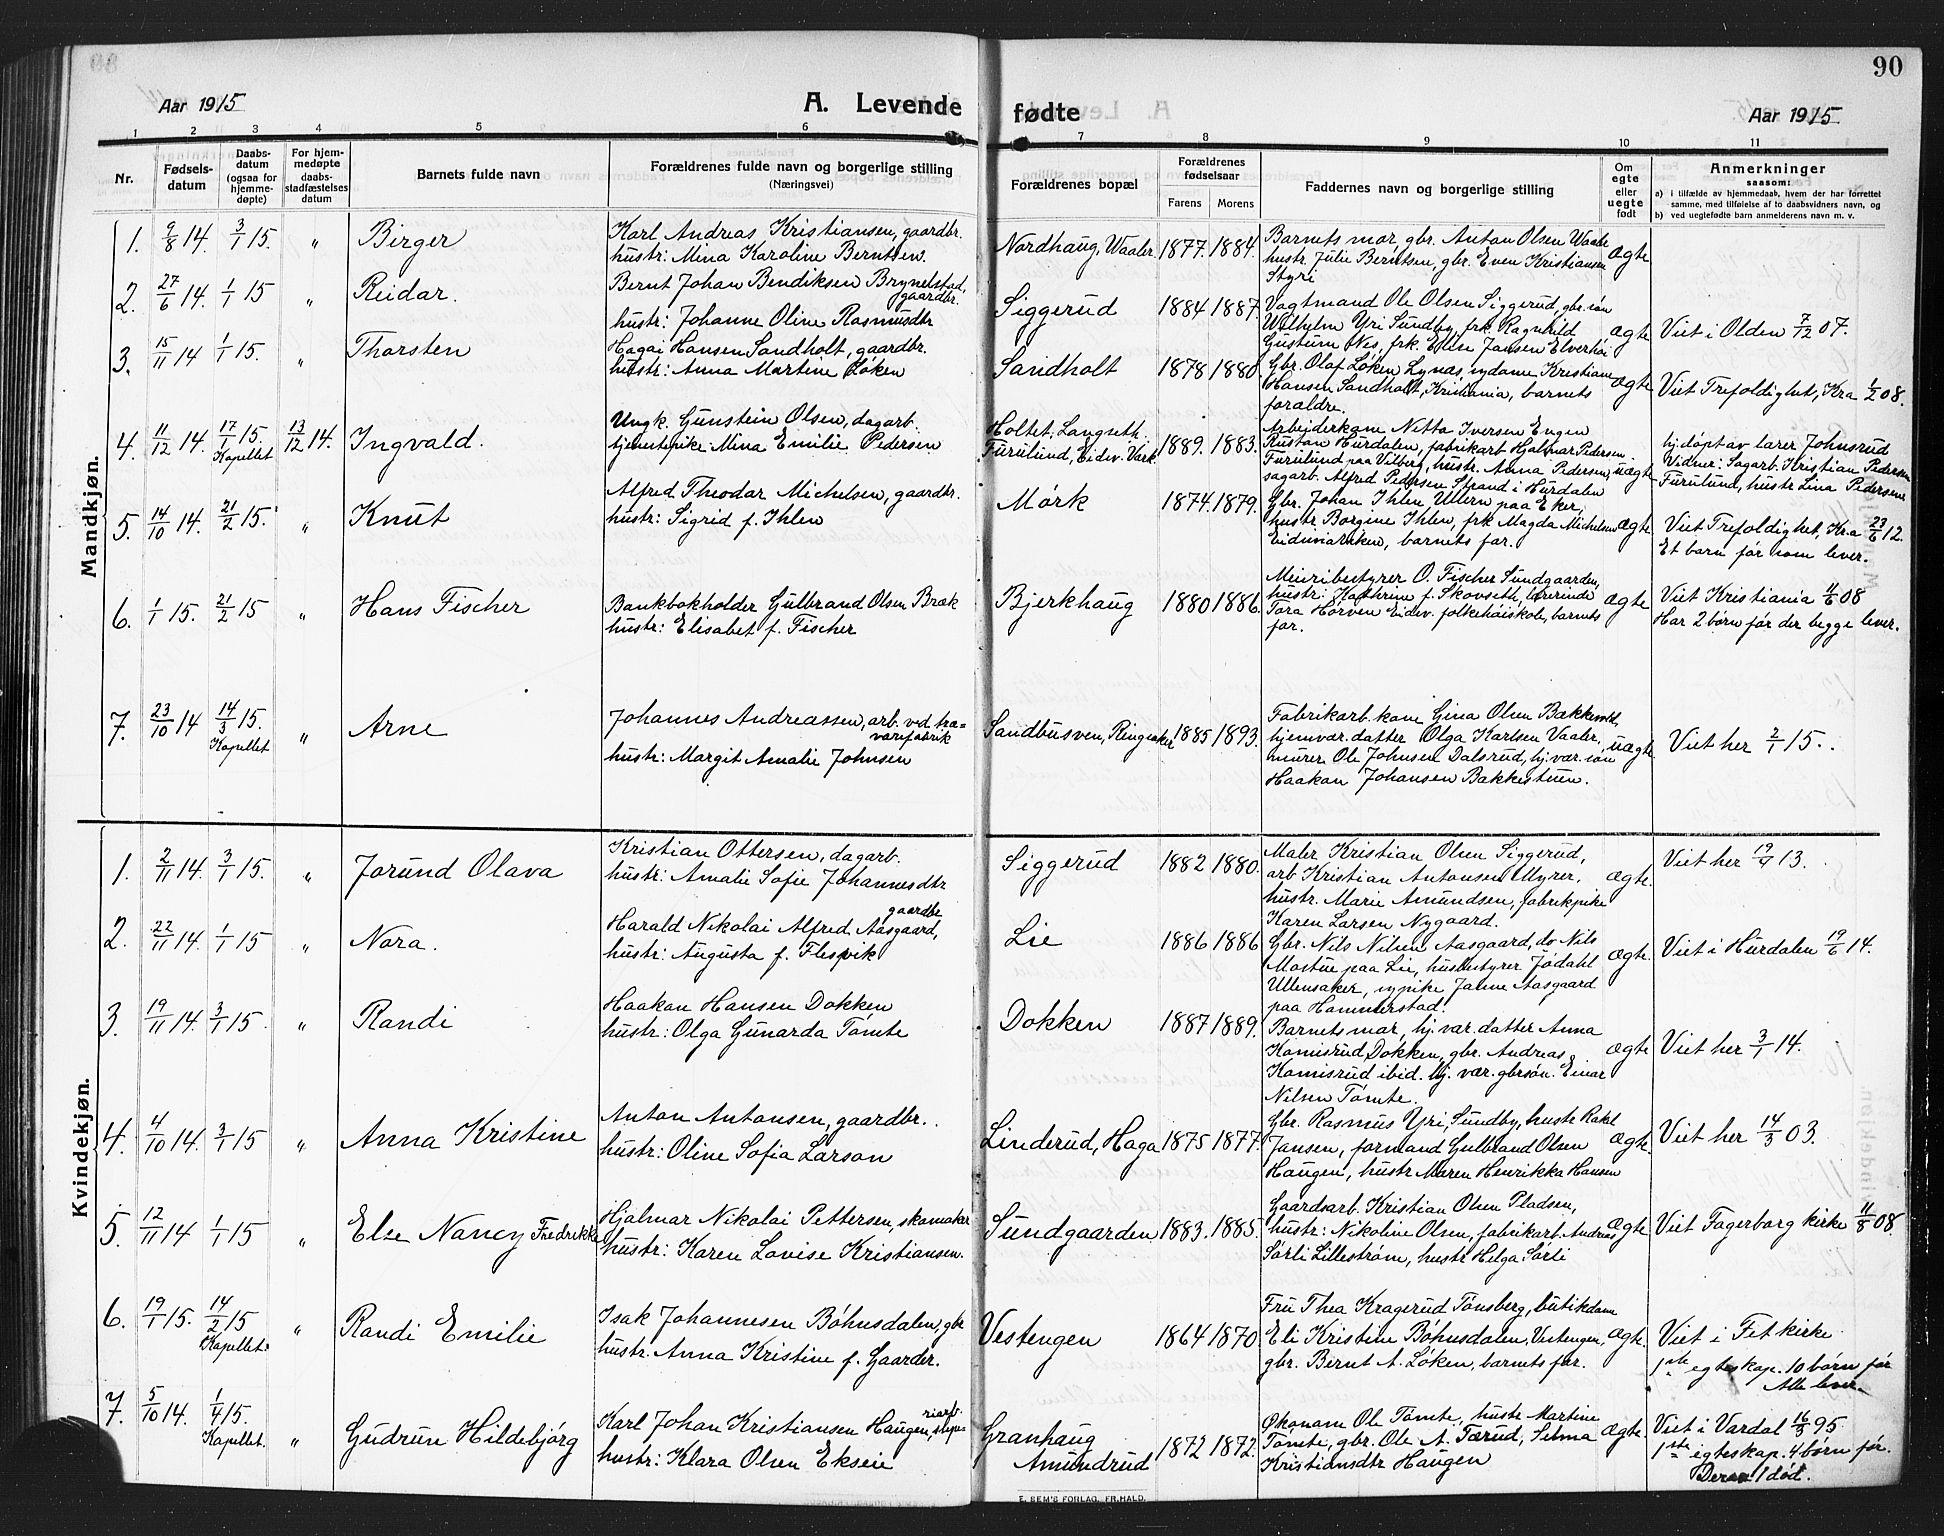 90
Aar 1915
A. Levende
fødte
Aar 1915
1 2 3 4 5 6 7 8 9 10 11
Nr.
Fødsels-
datum
Daabs-
datum
(ogsaa for
hjemme-
døpte)
For hjem-
medøpte
daabs-
stadfæstelses
datum
Barnets fulde navn
Forældrenes fulde navn og borgerlige stilling
(Næringsvei)
Forældrenes bopæl
Forældrenes
fødselsaar
Farens Morens
Faddernes navn og borgerlige stilling
Om
egte
eller
uegte
født
Anmerkninger
saasom:
a) i tilfælde av hjemmedaab, hvem der har forrettet
samme, med tilføielse af to daabsvidners navn, og
b) ved uegtefødte barn anmelderens navn m. v.
Mandkjøn.
1. 9/8 14. 3/1 15. " Birger
Karl Andreas Kristiansen, gaardbr.
hustr: Mina Karoline Berntsen.
Nordhaug, Waaler 1877. 1884.
Barnets mor, gbr. Anton Olsen Waaler
hustr. Julie Berntsen, gbr. Even Kristiansen
Styri
ægte
2. 27/6 14. 1/1 15 " Reidar.
Bernt Johan Bendiksen Brynelstad,
gaardbr.
hustr: Johanne Oline Rasmusdtr
Siggerud 1884 1887.
Vagtmand Ole Olsen Siggerud, gbr. søn
Wilhelm Yri Sundby, frk. Ragnhild
Gustum Nes, frk. Elise Jansen Elverhøi
ægte Viet i Olden 7/12 07.
3. 15/11 14 1/1 15. " Thorsten
Hagai Hansen Sandholt, gaardbr.
hustr: Anna Martine Løken
Sandholt 1878 1880.
Gbr. Olaf Løken Lynæs, sydame Kristiane
Hansen Sandholt, Kristiania, barnets
forældre.
ægte Viet Trefoldighet, Kra 1/2 08.
4. 11/12 14. 17/1 15. Kapellet 13/12 14. Ingvald.
Ungk. Gunstein Olsen, dagarb.
tjenestepike: Mina Emilie Pedersen
Holtet, Langseth.
Furulund, Eidsv. Værk. 1889. 1883.
Arbeiderkone Netta Iversen Engen
Rustan Hurdalen, fabrikarb Hjalmar Pedersen
Furulund paa Vilberg, hustr. Anna Pedersen,
sagarb. Alfred Pedersen Strand i Hurdalen
uægte
hj.døpt av lærer Johnsrud
Vidner: Sagarb. Kristian Pedersen
Furulund, hustr Lina Pedersen
5. 14/10 14. 21/2 15. " Knut
Alfred Theodor Michelsen, gaardbr.
hustr: Sigrid f. Ihlen
Mørk 1874. 1879.
Gbr. Johan Ihlen Ullern paa Eker,
hustr Borgine Ihlen, frk Magda Michelsen
barnets far.
ægte Viet Trefoldighet, Kra 23/6 12.
Et barn før som lever.
6. 1/1 15. 21/2 15 " Hans Fischer
Bankbokholder Gulbrand Olsen Bræk
hustr: Elisabet f. Fischer
Bjerkhaug 1880 1886.
Meieribestyrer O. Fischer Sundgaarden,
hustr: Kathrine f. Skovseth, lærerinde
Tora Hørven Eidsv. folkehøiskole, barnets
far.
ægte Viet Kristiania 11/6 08
Har 2 børn før der begge lever.
7. 23/10 14 14/3 15. Kapellet " Arne
Johannes Andreassen, arb. ved træ=
varefabrik
hustr: Margit Amalie Johnsen
Sandbusven, Ringsaker 1885 1893.
Fabrikarb. kone Gina Olsen Bakkevold,
hjemvær. datter Olga Karlsen Vaaler,
murer Ole Johnsen Dalsrud, hj.vær. søn
Haakon Johansen Bakkestuen.
uægte Viet her 2/1 15.
Kvindekjøn.
1. 2/11 14. 3/1 15. " Jorund Olava
Kristian Ottersen, dagarb.
hustr: Amalie Sofie Johannesdtr
Siggerud 1882 1880.
Maler Kristian Olsen Siggerud,
arb Kristian Antonsen Myrer,
hustr. Marie Amundsen, fabrikpike
Karen Larsen Nygaard.
ægte. Viet her 13.
2. 22/11 14. 1/1 15 " Nora.
gaardbr
Harald Nikolai Alfred Aasgaard,
hustr: Augusta f. Flesvik
Lie 1886 1886
Gbr. Nils Nilsen Aasgaard, do Nils
Mostue paa Lie, husbestyrer Jødahl
Ullensaker, sypike Jahne Aasgaard
paa Hammerstad.
ægte. Viet i Hurdalen 19/6 14.
3. 19/11 14. 3/1 15. " Randi
Haakon Hansen Dokken
hustr: Olga Gunarda Tømte
Dokken 1887 1889.
Barnets mor, hj. vær. datter Anna
Komisrud Dokken, gbr. Andreas
Komisrud ibid. hj. vær. gbrsøn. Einar
Nilsen Tømte.
ægte Viet her 3/1 14.
4. 4/10 14. 3/1 15 " Anna Kristine
Anton Antonsen, gaardbr.
hustr: Oline Sofia Larson
Linderud, Haga 1875 1877.
Gbr. Rasmus Yri, Sundby, hustr Rakel
Jansen, formand Gulbrand Olsen
Haugen, hustr Maren Henrikka Hansen
ægte. Viet her 14/3 03.
5. 12/11 14 1/1 15 " Else Nancy Fredrikke
Hjalmar Nikolai Pettersen, skomaker
hustr: Karen Lovise Kristiansen.
Sundgaarden 1883. 1885.
Gaardsarb. Kristian Olsen Pladsen,
hustr: Nikoline Olsen, fabrikarb. Andreas
Sørli Lillestrøm, hustr Helga Sørli
ægte Viet Fagerborg kirke 11/8 08.
6. 19/1 15. 14/2 15 Kapellet. " Randi Emilie
Isak Johannesen Bøhnsdalen, gbr
hustr. Anna Kristine f. Gaarder.
Vestengen 1864 1870.
Fru Thea Kragerud Tønsberg, butikdame
Eli Kristine Bøhnsdalen, Vestengen,
gbr. Bernt A. Løken, barnets far.
ægte. Viet i Fet kirke
1ste egteskap. 10 børn før
Alle lever
7. 5/10 14. 1/4 15. Kapellet. " Gudrun Hildebjørg
Karl Johan Kristiansen Haugen,
hustr: Klara Olsen Ekseie
Granhaug
Amundrud 1872 1872.
Økonom Ole Tømte, hustr Martine
Tømte, gbr. Ole A. Tærud, Selma
Kristiansdtr Haugen
ægte Viet i Vardal 16/3 95
1ste egteskap. 4 børn før.
Derav 1 død.
E. SEM'S FORLAG, FR.HALD.